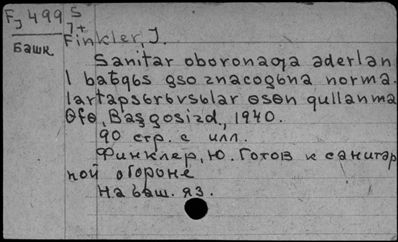 Fj 499 5
7+
Башк
Finkler, J.
Sanitar oboronaƣa əderlən
l baƫqьs ɵsɵ znacogьna norma-
lartapsьrьvsьlar ɵsɵn qullanma
Ɵfɵ, Başgosizd, 1940.
90 стр. с илл.
Финклер, Ю. Готов к санитар
ной обороне
На баш. яз.